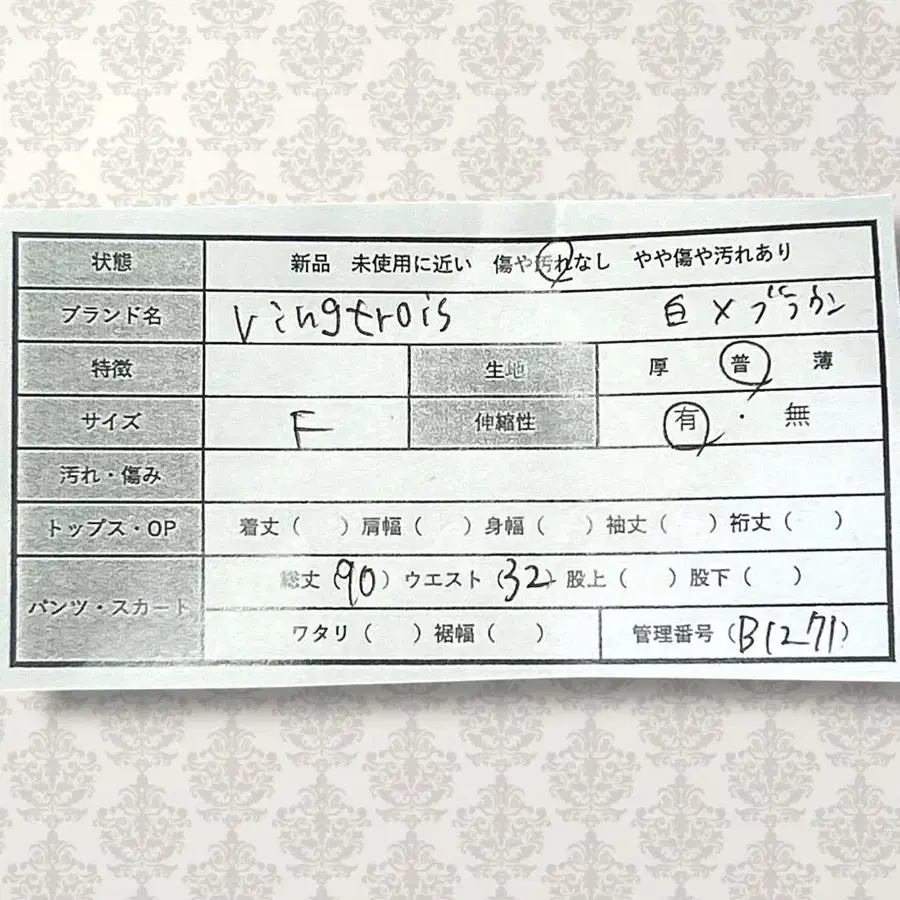 状態 新品 未使用に近い 傷や汚れなし やや傷や汚れあり
ブランド名 Vingtrois 白×ブラウン
特徴 生地 厚 普 薄
サイズ F 伸縮性 有・無
汚れ・傷み
トップス・OP 着丈( )肩幅( )身幅( )袖丈( )裄丈( )
パンツ・スカート 総丈(90)ウエスト(32)股上( )股下( )
ワタリ( )裾幅( ) 管理番号(B1271)